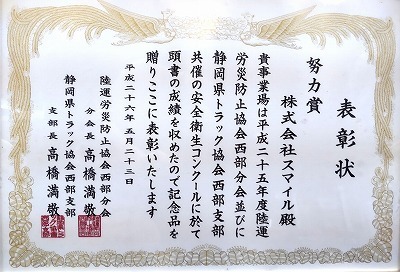 表彰状
努力賞
株式会社スマイル殿
貴事業場は平成二十五年度陸運
労災防止協会西部分会並びに
静岡県トラック協会西部支部
共催の安全衛生コンクールに於て
頭書の成績を収めたので記念品を
贈りここに表彰いたします
平成二十六年五月二十三日
陸運労災防止協会西部分会
分会長 高橋満敬
静岡県トラック協会西部支部
支部長 高橋満敬